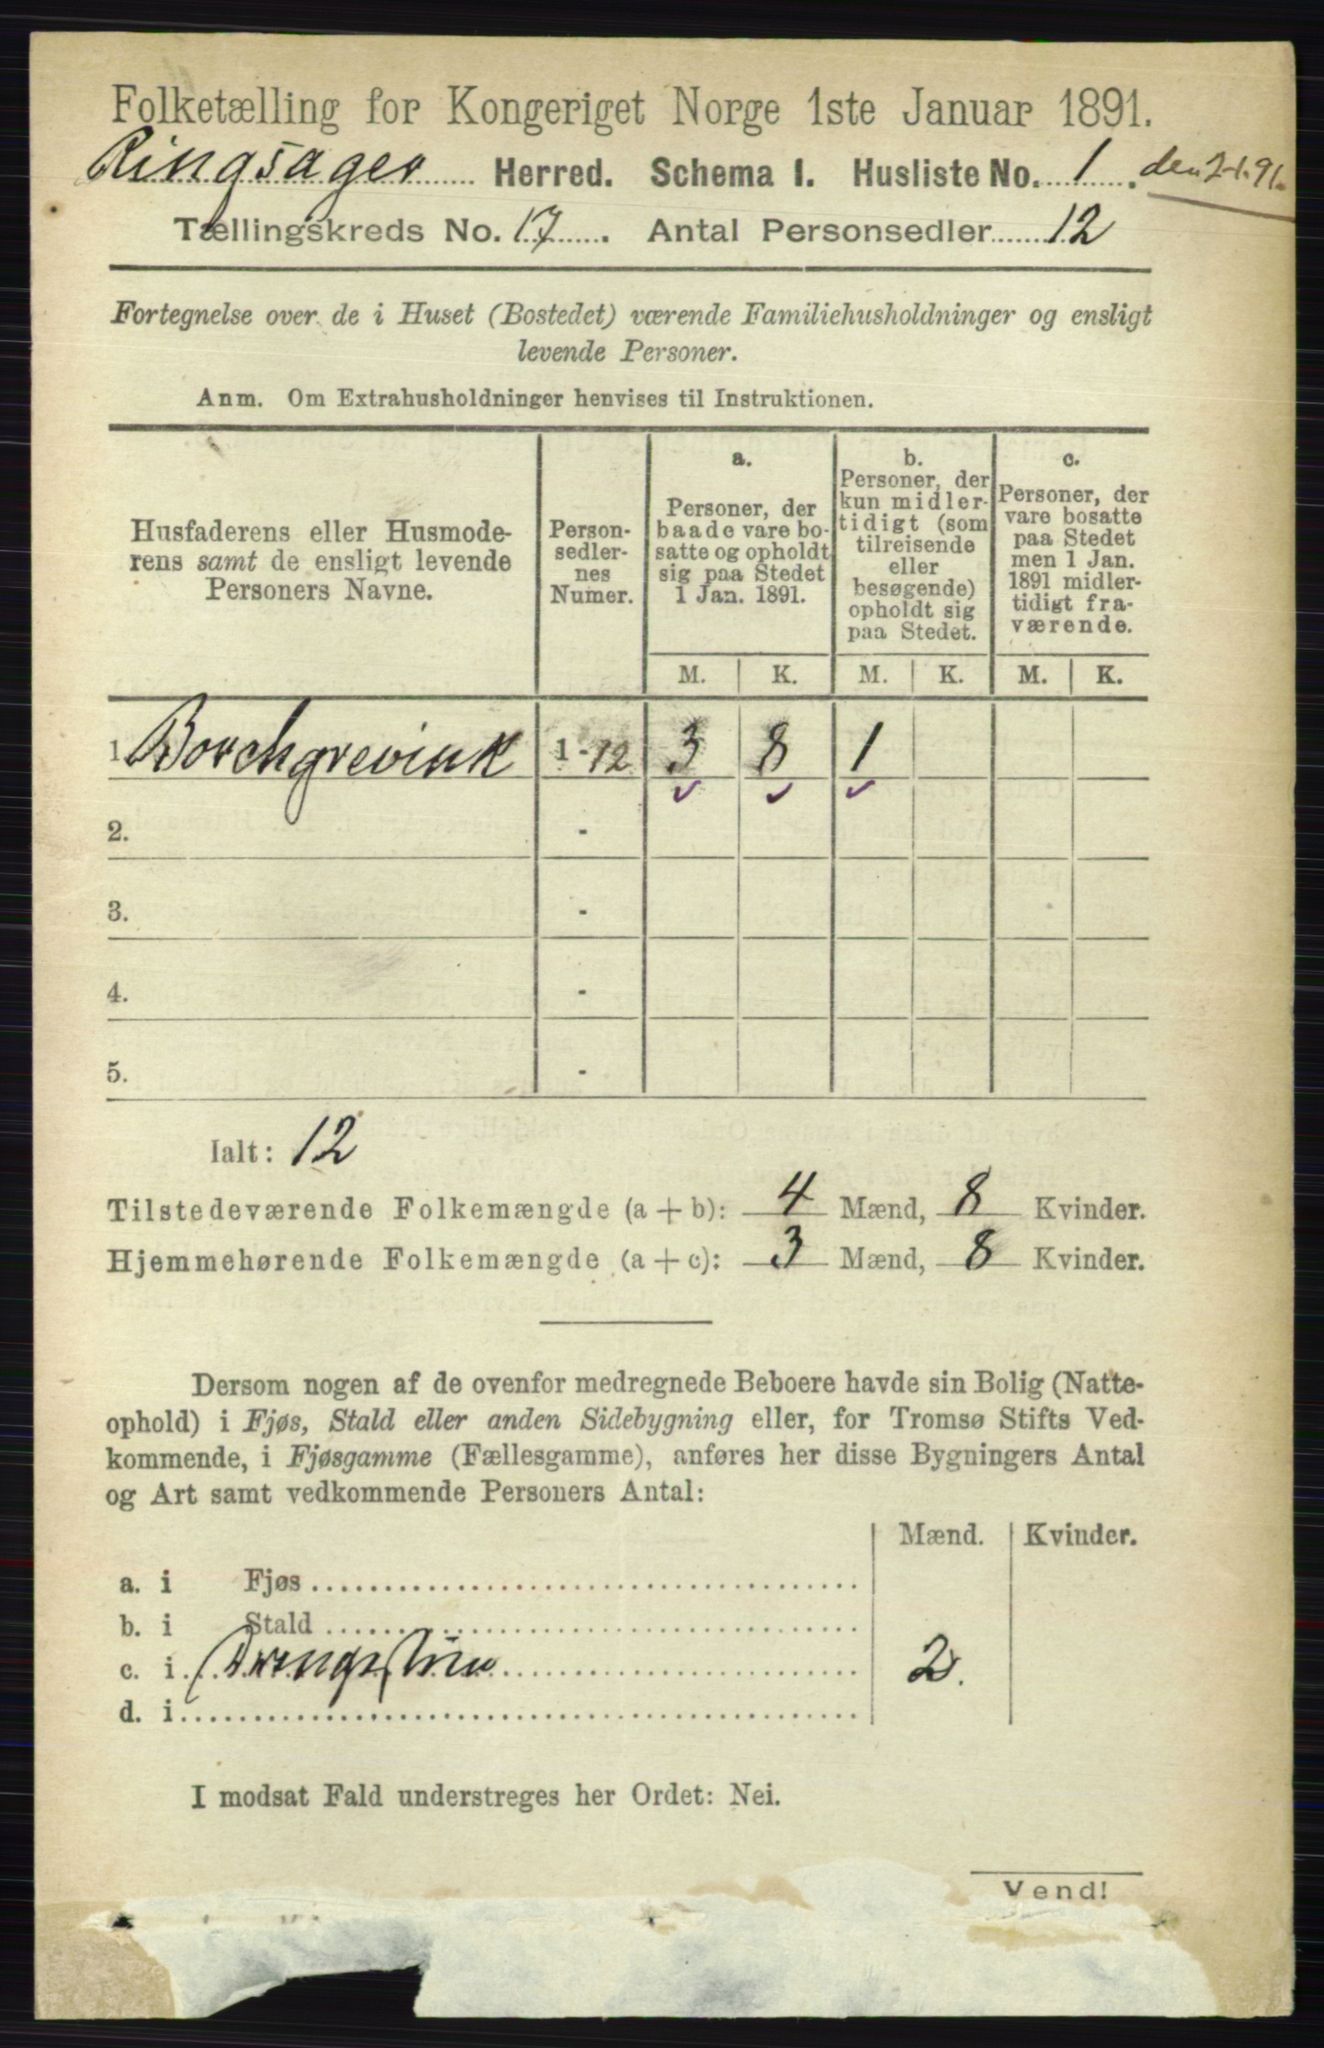 Folketælling for Kongeriget Norge 1ste Januar 1891.
Ringsager Herred. Schema I. Husliste No. 1. den 2-1.91.
Tællingskreds No. 17. Antal Personsedler 12
Fortegnelse over de i Huset (Bostedet) værende Familiehusholdninger og ensligt
levende Personer.
Anm. Om Extrahusholdninger henvises til Instruktionen.
Husfaderens eller Husmode-
rens samt de ensligt levende
Personers Navne.
Person-
sedler-
nes
Numer.
a.
Personer, der
baade vare bo-
satte og opholdt
sig paa Stedet
1 Jan. 1891.
b.
Personer, der
kun midler-
tidigt (som
tilreisende
eller
besøgende)
opholdt sig
paa Stedet.
c.
Personer, der
vare bosatte
paa Stedet
men 1 Jan.
1891 midler-
tidigt fra-
værende.
M. K. M. K. M. K.
1. Borchgrevink 1-12 3 8 1
2. -
3. -
4. -
5. -
Ialt: 12
Tilstedeværende Folkemængde (a + b): 4 Mænd, 8 Kvinder.
Hjemmehørende Folkemængde (a + c): 3 Mænd, 8 Kvinder.
Dersom nogen af de ovenfor medregnede Beboere havde sin Bolig (Natte-
ophold) i Fjøs, Stald eller anden Sidebygning eller, for Tromsø Stifts Ved-
kommende, i Fjøsgamme (Fællesgamme), anføres her disse Bygningers Antal
og Art samt vedkommende Personers Antal:
Mænd. Kvinder.
a. i Fjøs
b. i Stald
c. i Drengestue 2.
d. i
I modsat Fald understreges her Ordet: Nei.
Vend!